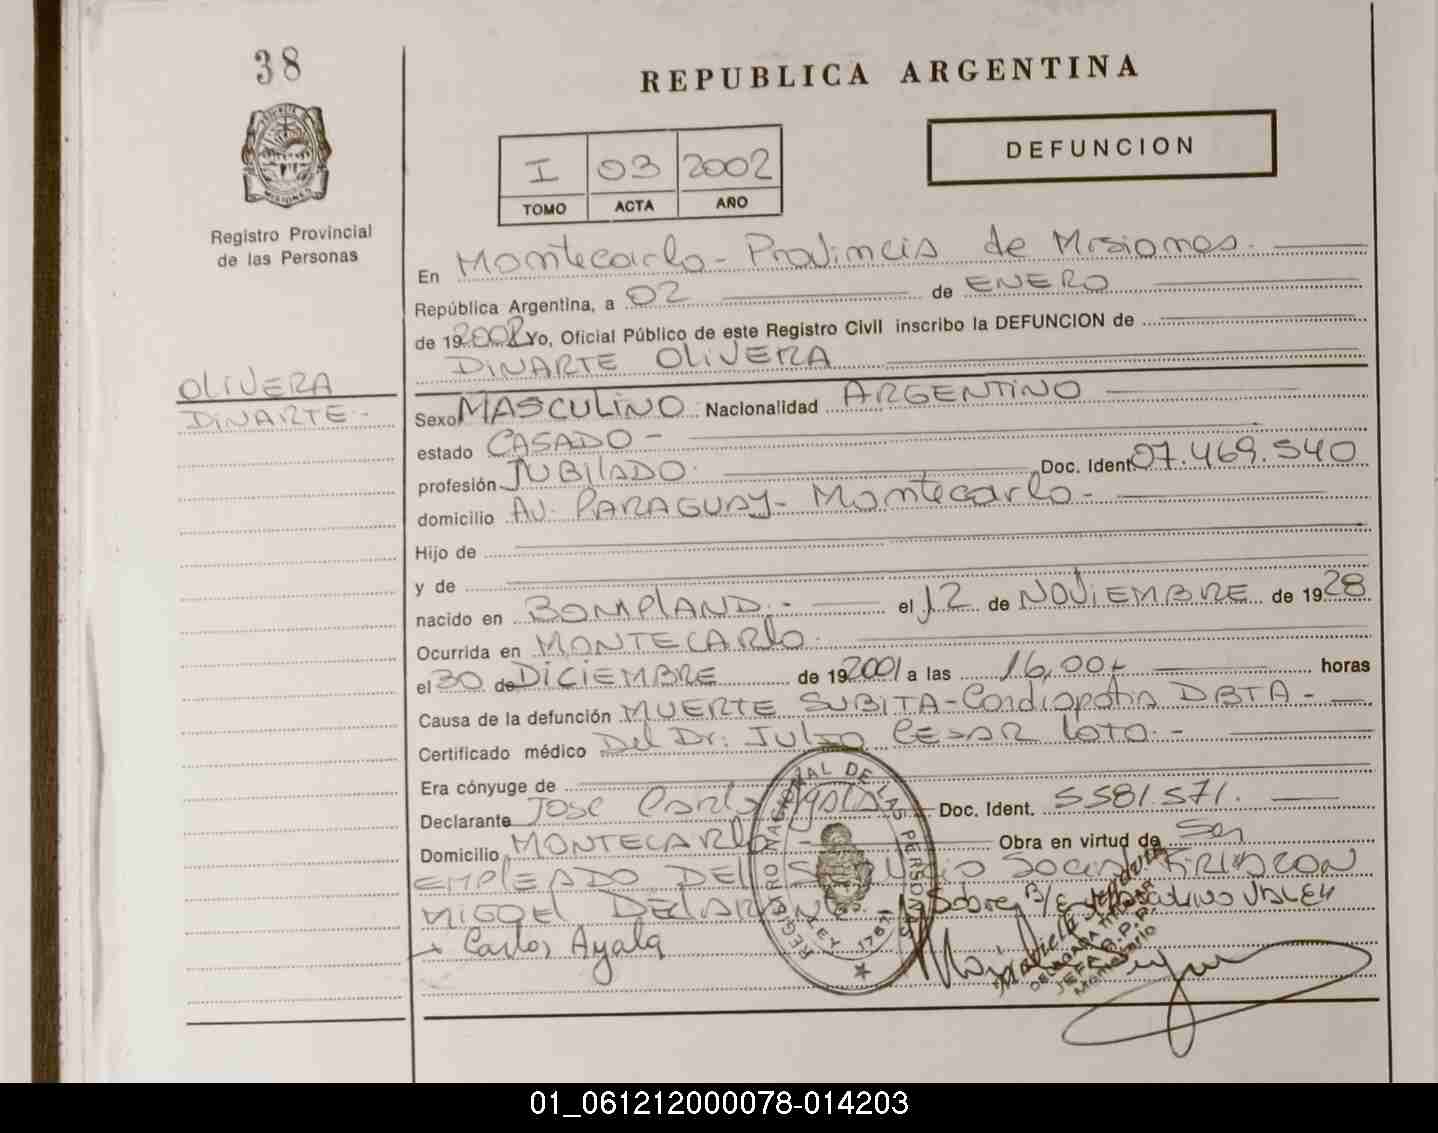 38
REPUBLICA ARGENTINA
DEFUNCION
I 03 2002
TOMO ACTA AÑO
Registro Provincial
de las Personas
En Montecarlo - Provincia de Misiones.
República Argentina, a 02 de ENERO
de 19 2002 Yo, Oficial Público de este Registro Civil inscribo la DEFUNCION de
DINARTE OLIVERA
OLIVERA
DINARTE -
Sexo MASCULINO Nacionalidad ARGENTINO
estado CASADO -
profesión JUBILADO Doc. Ident. 07.469.540
domicilio AV. PARAGUAY - Montecarlo -
Hijo de
y de
nacido en BOMPLAND - el 12 de NOVIEMBRE de 1928
Ocurrida en MONTECARLO.
el 30 de DICIEMBRE de 19 2001 a las 16,00 horas
Causa de la defunción MUERTE SUBITA - Cardiopatia DBTA -
Certificado médico Del Dr. JULIO CESAR LOTO. -
Era cónyuge de
Declarante JOSE Carlos Ayala Doc. Ident. 5581.571.
Domicilio MONTECARLO Obra en virtud de Ser
EMPLEADO DEL SERVICIO Social
MIGUEL
Carlos Ayala
REGISTRO NACIONAL DE LAS PERSONAS
LEY 17671
DELEGADA TITULAR
Montecarlo
01_061212000078-014203